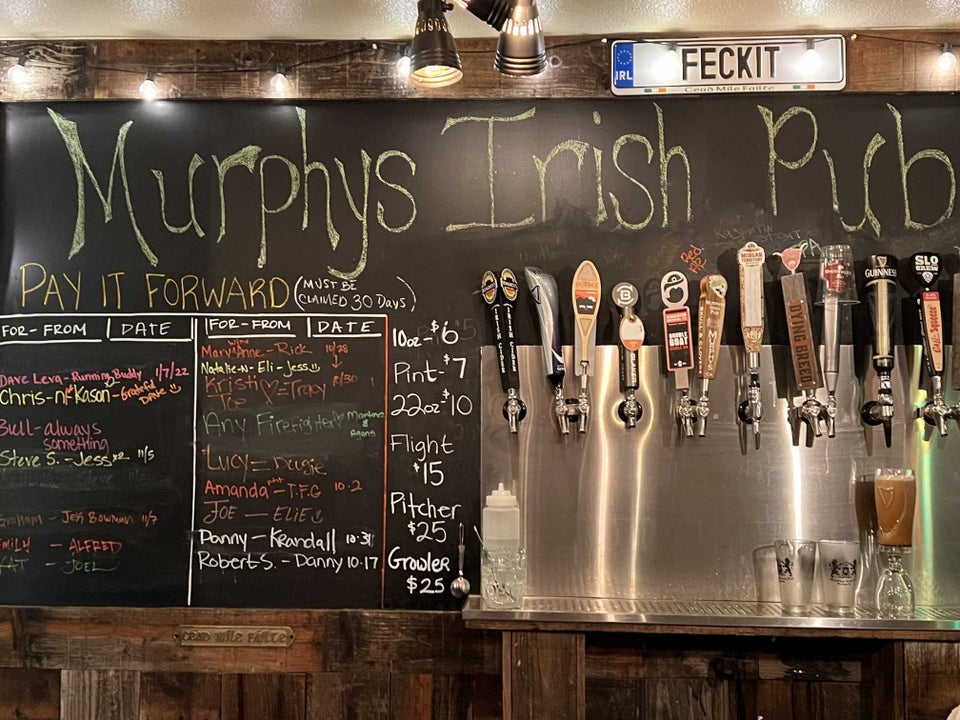 IRL FECKIT
Cead Mile Failte
Murphys Irish Pub
PAY IT FORWARD (MUST BE
CLAIMED 30 DAYS)
FOR-FROM DATE
Dave Leva-Running Buddy 11/7/22
Chris-n-Kason-Grateful
Bull-always
something
Steve S.-Jess x2 11/5
Graham-Jess Bowman 11/7
EMILY - ALFRED
KAT - JOEL
FOR-FROM DATE
Mary Anne-Rick 10/28
Natalie-N-Eli-Jess
Kristi Tracy
Joe
Any Firefighter
Lucy = Dougie
Amanda-T.F.G 10.2
JOE — ELIE
Danny-Krandall 10.31
Robert S.-Danny 10.17
10oz-$6
Pint-$7
22oz $10
Flight
$15
Pitcher
$25
Growler
$25
IRISH CIDER
IRISH CIDER
DOUBLE BOAT
MORGAN
TERRITORY
DYING BREED
GUINNESS
SLO
BREW
Cali-Squeeze
CEAD MILE FAILTE